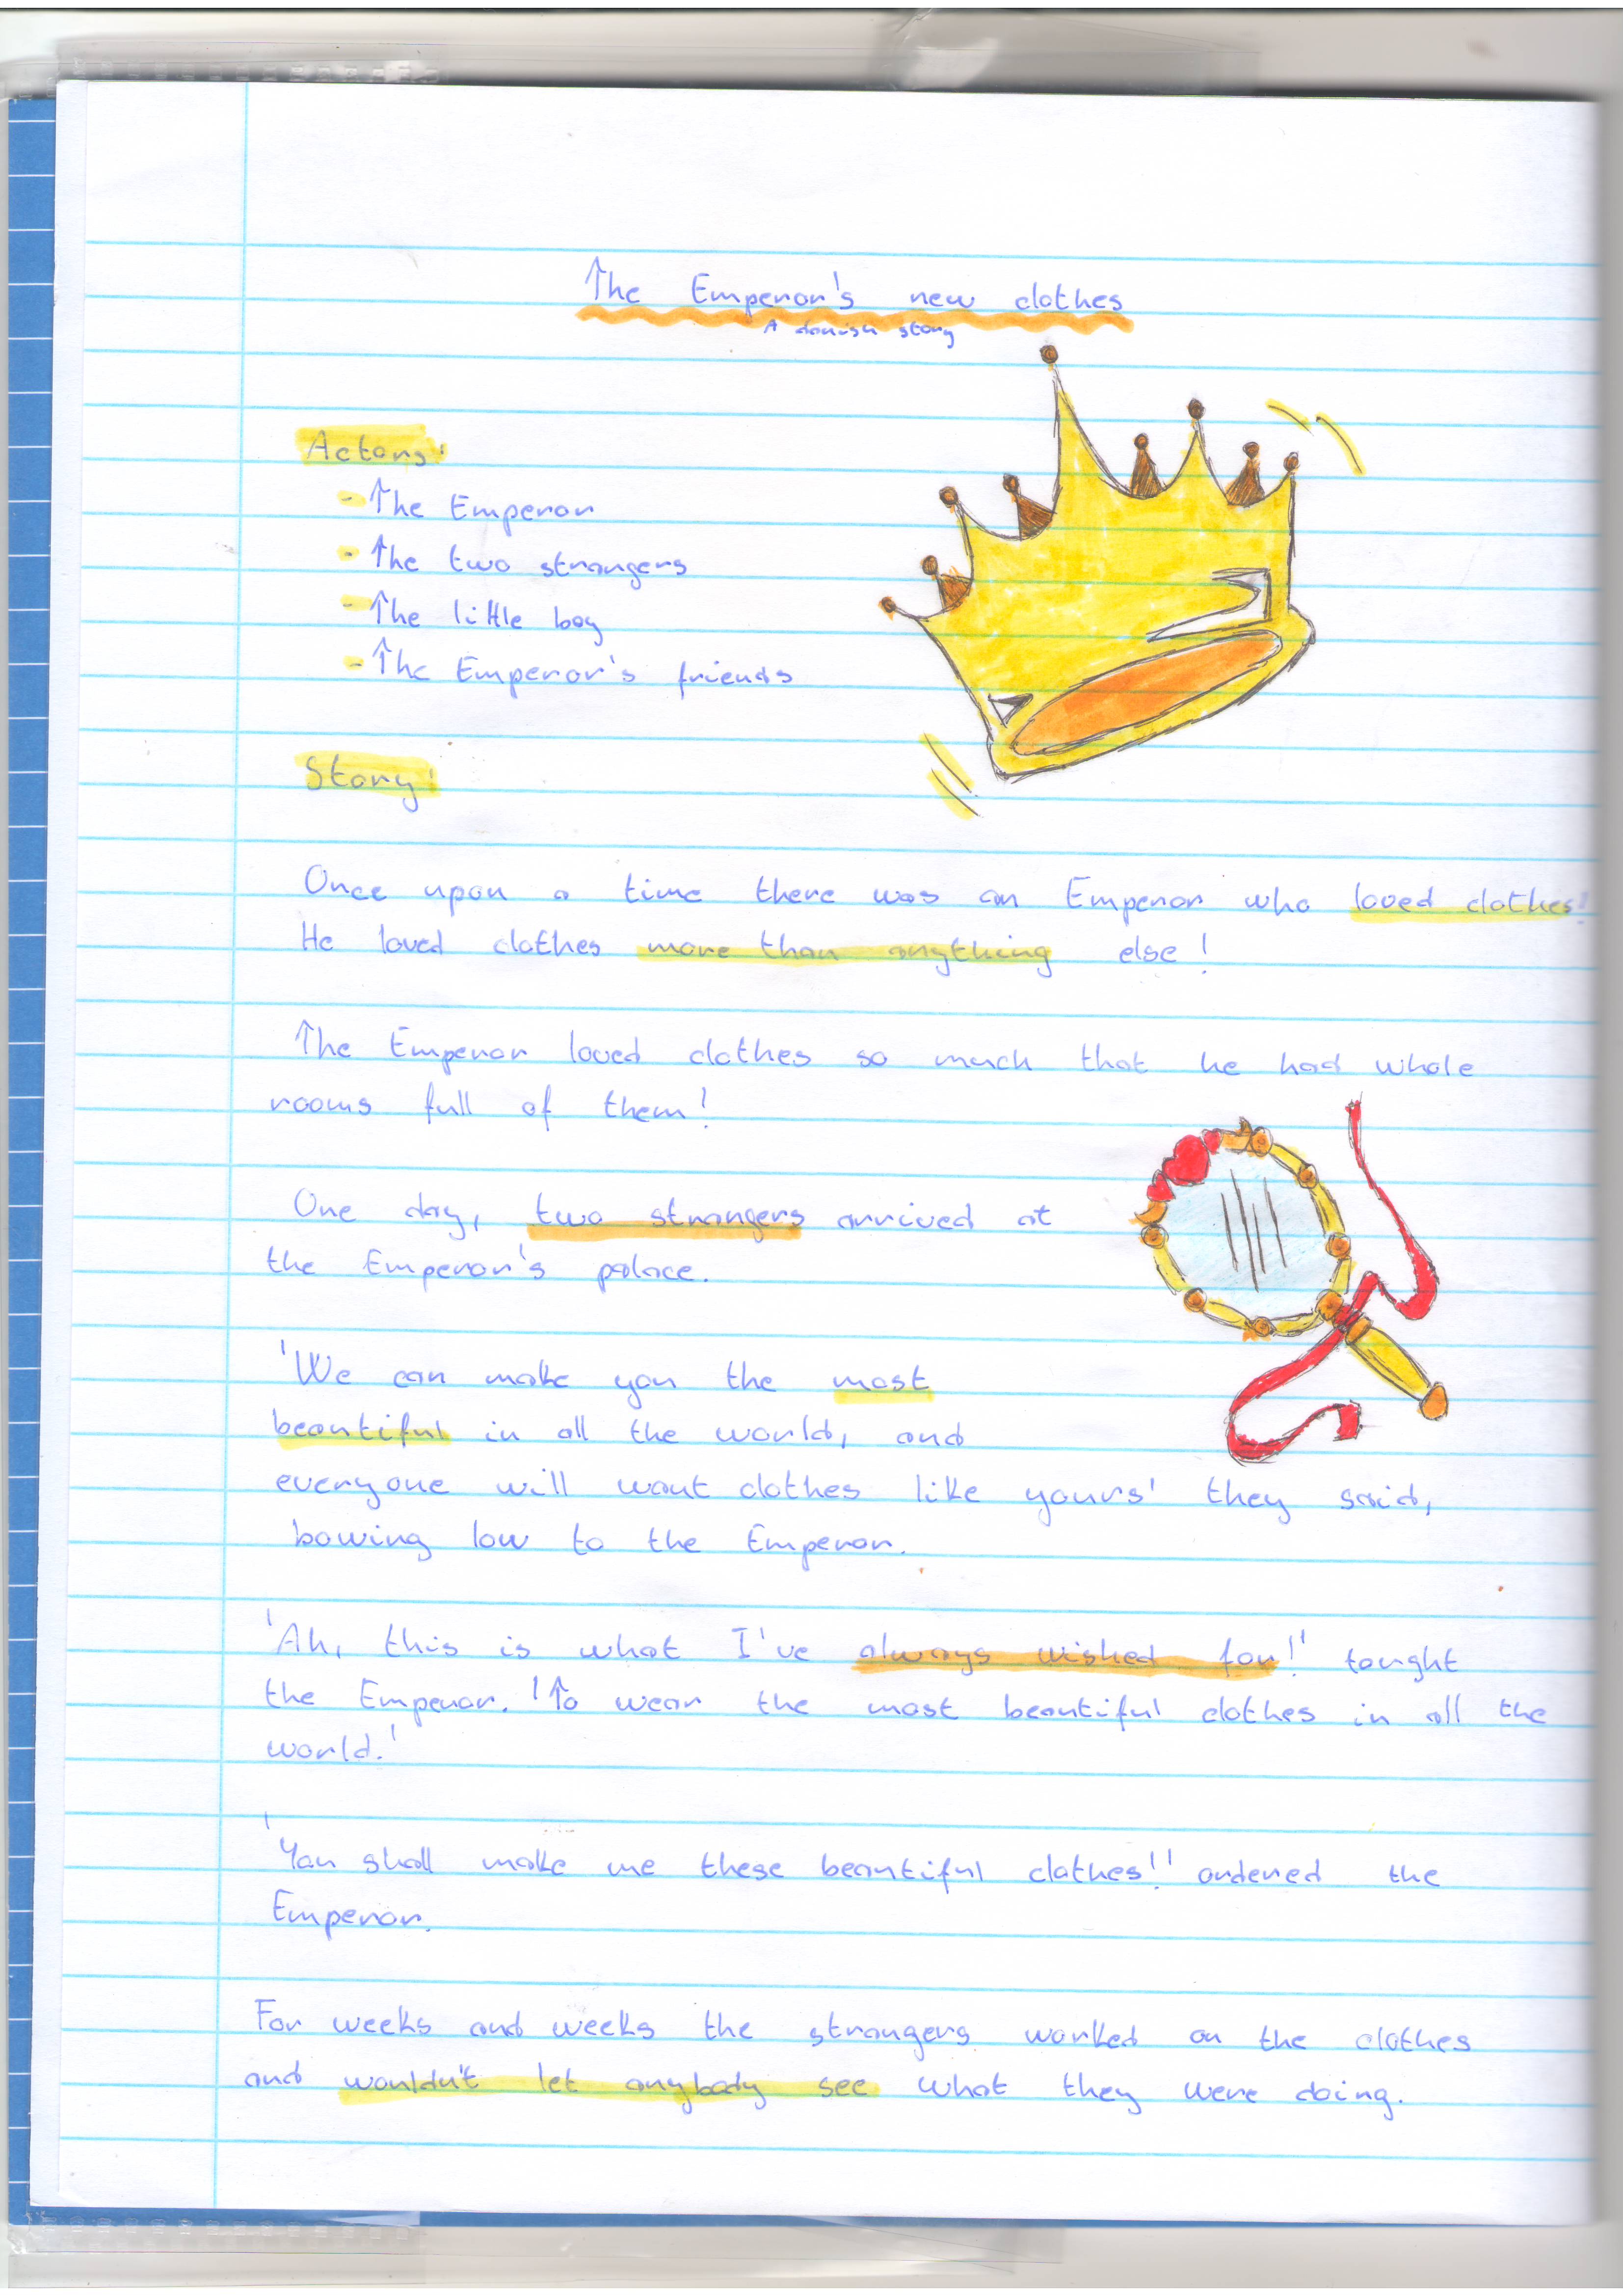 The Emperor's new clothes
A danish story
Actors:
- The Emperor
- The two strangers
- The little boy
- The Emperor's friends
Story:
Once upon a time there was an Emperor who loved clothes!
He loved clothes more than anything else!
The Emperor loved clothes so much that he had whole
rooms full of them!
One day, two strangers arrived at
the Emperor's palace.
'We can make you the most
beautiful in all the world, and
everyone will want clothes like yours' they said,
bowing low to the Emperor.
'Ah, this is what I've always wished for!' tought
the Emperor. 'To wear the most beautiful clothes in all the
world.'
'You shall make me these beautiful clothes!' ordered the
Emperor.
For weeks and weeks the strangers worked on the clothes
and wouldn't let anybody see what they were doing.